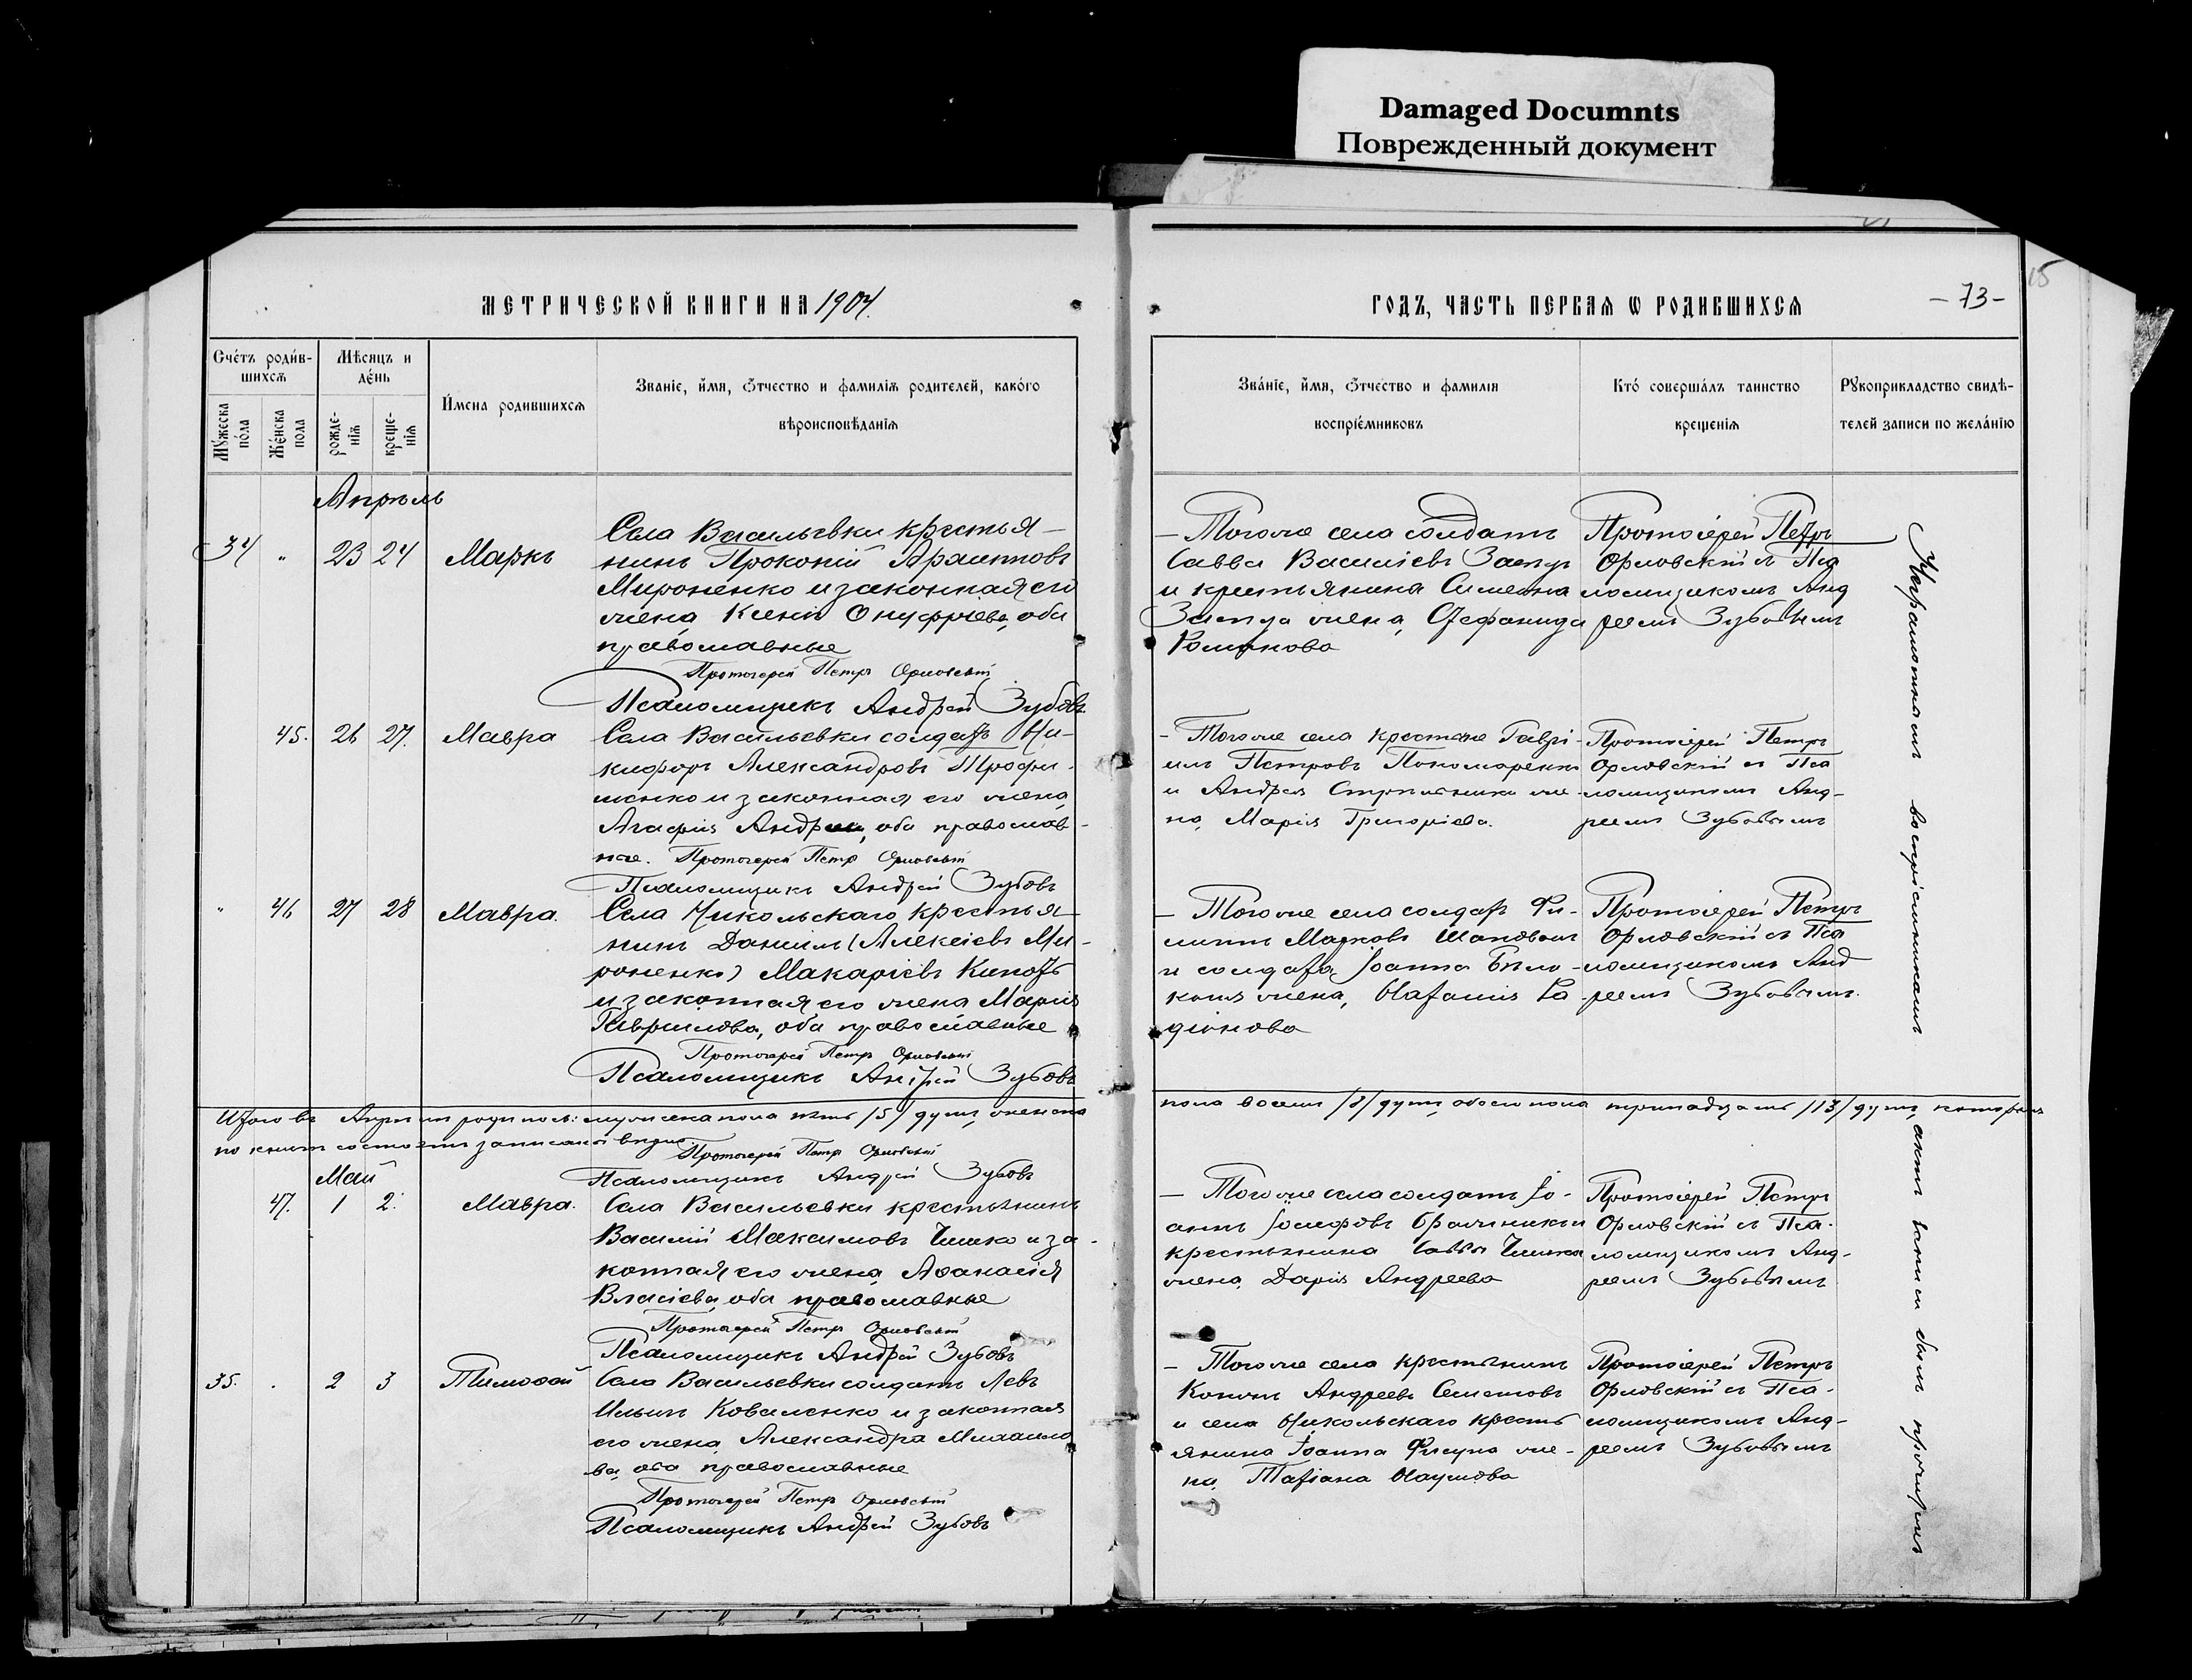 Damaged Documnts
Поврежденный документ
15
МЕТРИЧЕСКОЙ КНИГИ НА 1904.
ГОДЪ, ЧАСТЬ ПЕРВАЯ Ѡ РОДИВШИХСЯ
- 73 -
Счётъ роди́в-
шихсѧ
Мѣсяцъ и
де́нь
И́мена родившихсѧ
Званіе, и҆мя, ѻ҆тчество и фамилїѧ родителей, како́го
вѣроисповѣданїѧ
Му́жеска
по́ла
Же́нска
пола
рожде-
нїѧ
креще-
нїѧ
Зва́нїе, и҆мя, ѻ҆тчество и фамилїя
воспрїе́мниковъ
Кто́ соверша́лъ таинство
крещенїѧ
Рꙋкоприкладство свидѣ-
телей записи по жела́нїю
Апрѣль
34 " 23 24 Маркъ
Села Васильевки крестья-
нинъ Прокопій
Мироненко и законная его
жена Ксенія Онуфріева, оба
православные
Протоіерей Петръ Орловскій
Псаломщикъ Андрей Зубовъ
- Тогоже села солдатъ
Савва Василіевъ
и крестьянина Симеона
жена, Стефанида
Романова
Протоіерей Петръ
Орловскій съ Пса
ломщикомъ Анд
реемъ Зубовымъ
45. 26 27. Мавра
Села Васильевки солдатъ Ни-
кифоръ Александровъ Трофи-
менко и законная его жена,
Агафія Андреева, оба православ-
ные. Протоіерей Петръ Орловскій
Псаломщикъ Андрей Зубовъ
- Тогоже села крестьяне Гаврі-
илъ Петровъ Пономаренко
и Андрея же-
на, Марія Григоріева.
Протоіерей Петръ
Орловскій съ Пса
ломщикомъ Анд-
реемъ Зубовымъ
" 46 27 28 Мавра.
Села Никольскаго крестья-
нинъ Даніилъ (Алексіевъ Ми-
роненко) Макаріевъ
и законная его жена Марія
Гавриилова, оба православные
Протоіерей Петръ Орловскій
Псаломщикъ Андрей Зубовъ
- Тогоже села солдатъ Фи-
липпъ Марковъ Шаповалъ
и солдата Іоанна
жена, Наталія
Протоіерей Петръ
Орловскій съ Пса
ломщикомъ Анд
реемъ Зубовымъ.
Итого въ Апрѣлѣ родилось: мужеска пола пять /5/ душъ, женска
пола восемь /8/ душъ, обоего пола тринадцать /13/ душъ,
Протоіерей Петръ Орловскій
Псаломщикъ Андрей Зубовъ
Май
47. 1 2. Мавра.
Села Васильевки крестьянинъ
Василій Максимовъ Чишко и за-
конная его жена Аѳанасія
Власіева, оба православные
Протоіерей Петръ Орловскій
Псаломщикъ Андрей Зубовъ
- Тогоже села солдатъ Іо-
аннъ Іосифовъ
крестьянина Саввы Чишка
жена, Дарія Андреева
Протоіерей Петръ
Орловскій съ Пса-
ломщикомъ Анд-
реемъ Зубовымъ
35. . 2 3 Тимоѳей
Села Васильевки солдатъ Левъ
Ильинъ Коваленко и законная
его жена Александра Михаило
ва, оба православные
Протоіерей Петръ Орловскій
Псаломщикъ Андрей Зубовъ
- Тогоже села крестьянинъ
Кононъ Андреевъ
и села Никольскаго кресть
янина Іоанна Фисуна же-
на, Татіана Наумова
Протоіерей Петръ
Орловскій съ Пса-
ломщикомъ Анд-
реемъ Зубовымъ
Неграмотнымъ воспріемникамъ актъ сей былъ прочитанъ